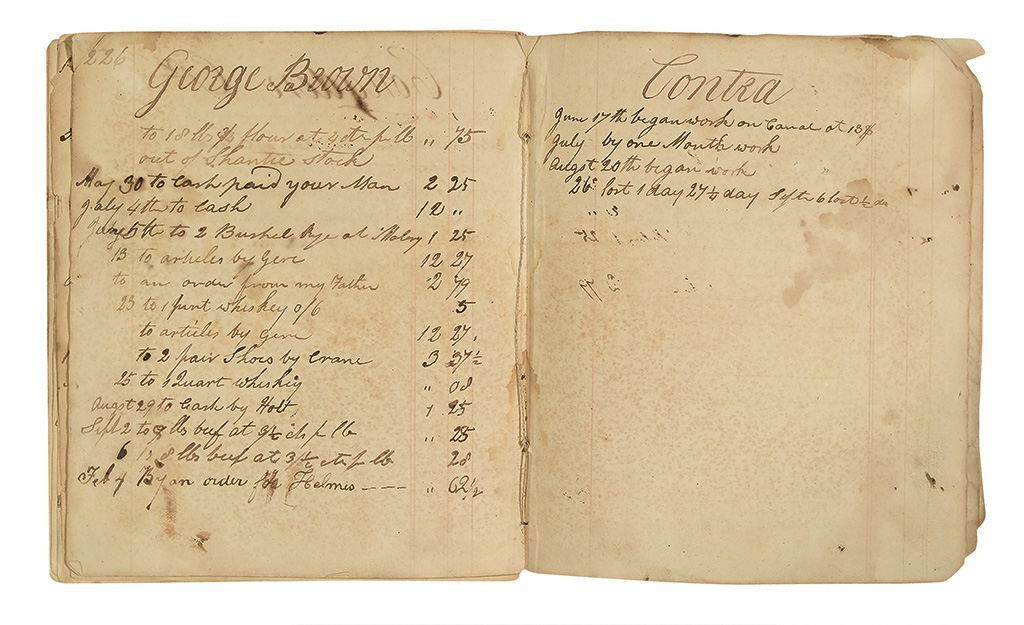 226
George Brown
to 18 lbs of flour at 4 cts p lb " 75
out of Shantie Stock
May 30 to Cash paid your Man 2 25
July 4th to Cash 12 "
June 5th to 2 Bushel Rye at 1 25
13 to articles by Gere 12 27
to an order from my Father 2 79
23 to 1 pint whiskey 0/6 5
to articles by Gere 12 27
to 2 pair Shoes by Crane 3 37½
25 to 1 Quart whiskey " 08
Augst 29 to Cash by Holt 1 25
Sept 2 to 8 lbs beef at 3½ cts p lb " 28
6 to 8 lbs beef at 3½ cts p lb 28
Feb 4 By an order for Helmes " 62½
Contra
June 17th began work on Canal at 13$
July by one Month work
Augst 20th began work
26 lost 1 day 27 ½ day Septr 6 lost ½ da